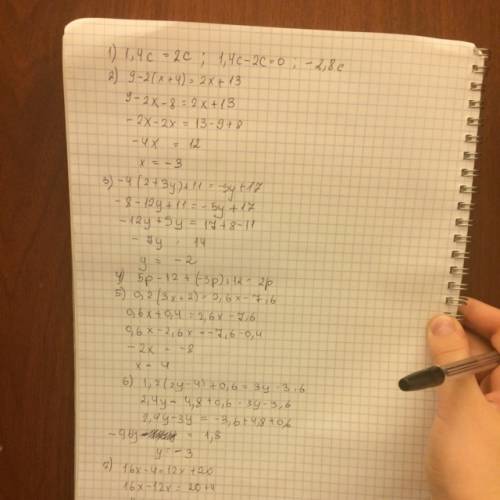 1) 1,4c = 2c ; 1,4c-2c=0 ; -2,8c
2) 9-2(x+4)=2x+13
9-2x-8=2x+13
-2x-2x=13-9+8
-4x = 12
x = -3
3) -4(2+3y)+11=-5y+17
-8-12y+11=-5y+17
-12y+5y=17+8-11
-7y = 14
y = -2
4) 5p-12+(-3p)+12=2p
5) 0,2(3x+2)=2,6x-7,6
0,6x+0,4=2,6x-7,6
0,6x-2,6x=-7,6-0,4
-2x = -8
x = 4
6) 1,2(2y-4)+0,6=3y-3,6
2,4y-4,8+0,6=3y-3,6
2,4y-3y=-3,6+4,8+0,6
= 1,8
y=-3
7) 16x-4=12x+20
16x-12x=20+4